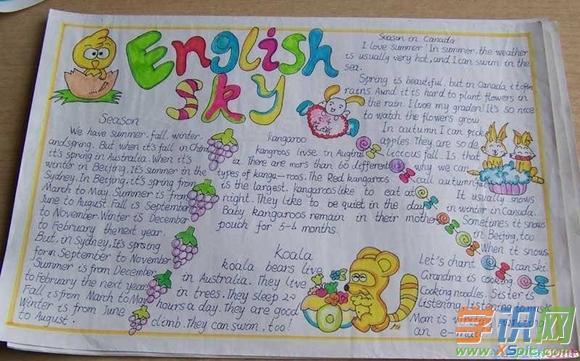 English
Sky
Season
We have summer, fall, winter
and spring. But when it's fall in China
it's spring in Australia. When it's
winter in Beijing. It's summer in the
Sydney. In Beijing, it's spring from
March to May. Summer is from
June to August Fall is September
to November Winter is December
to February the next year.
But, in Sydney, It's spring
from September to November
Summer is from December
to February the next year
Fall is from March to May
Winter is from June
to August.
kangaroo
kangroos livse in
a. There are mors than 60 different
types of kanga-roos. The Red kangaroos
is the largest. kangaroos like to eat at
night. They like to be quiet in the day.
Baby kangaroos remain in their mother
pouch for 5-6 months.
Koala
koala bears live
in Australia. They live
in trees. They sleep
hours a day. They are good
climb. they can swan, too!
Season in Canada
I love summer In summer, the weather
is usually very hot, and I can swim in the
sea.
Spring is beautiful, but in Canada, it often
rains. Awnd it is hard to plant flowers in
the rain. I love my graden! It's so nice
to watch the flowers grow.
In autumn I can pick
apples. They are so de
licous fall. Is that
why we can
call autumn
It usually snows
in winter in Canada.
Sometimes it snows
in Beijing, too
When it snows
I can ski.
Let's chant
Grandma is cooking
Cooking noodles. Sister is
Listening, Listening
Mom is
an e-mail
学识网
xspic.com